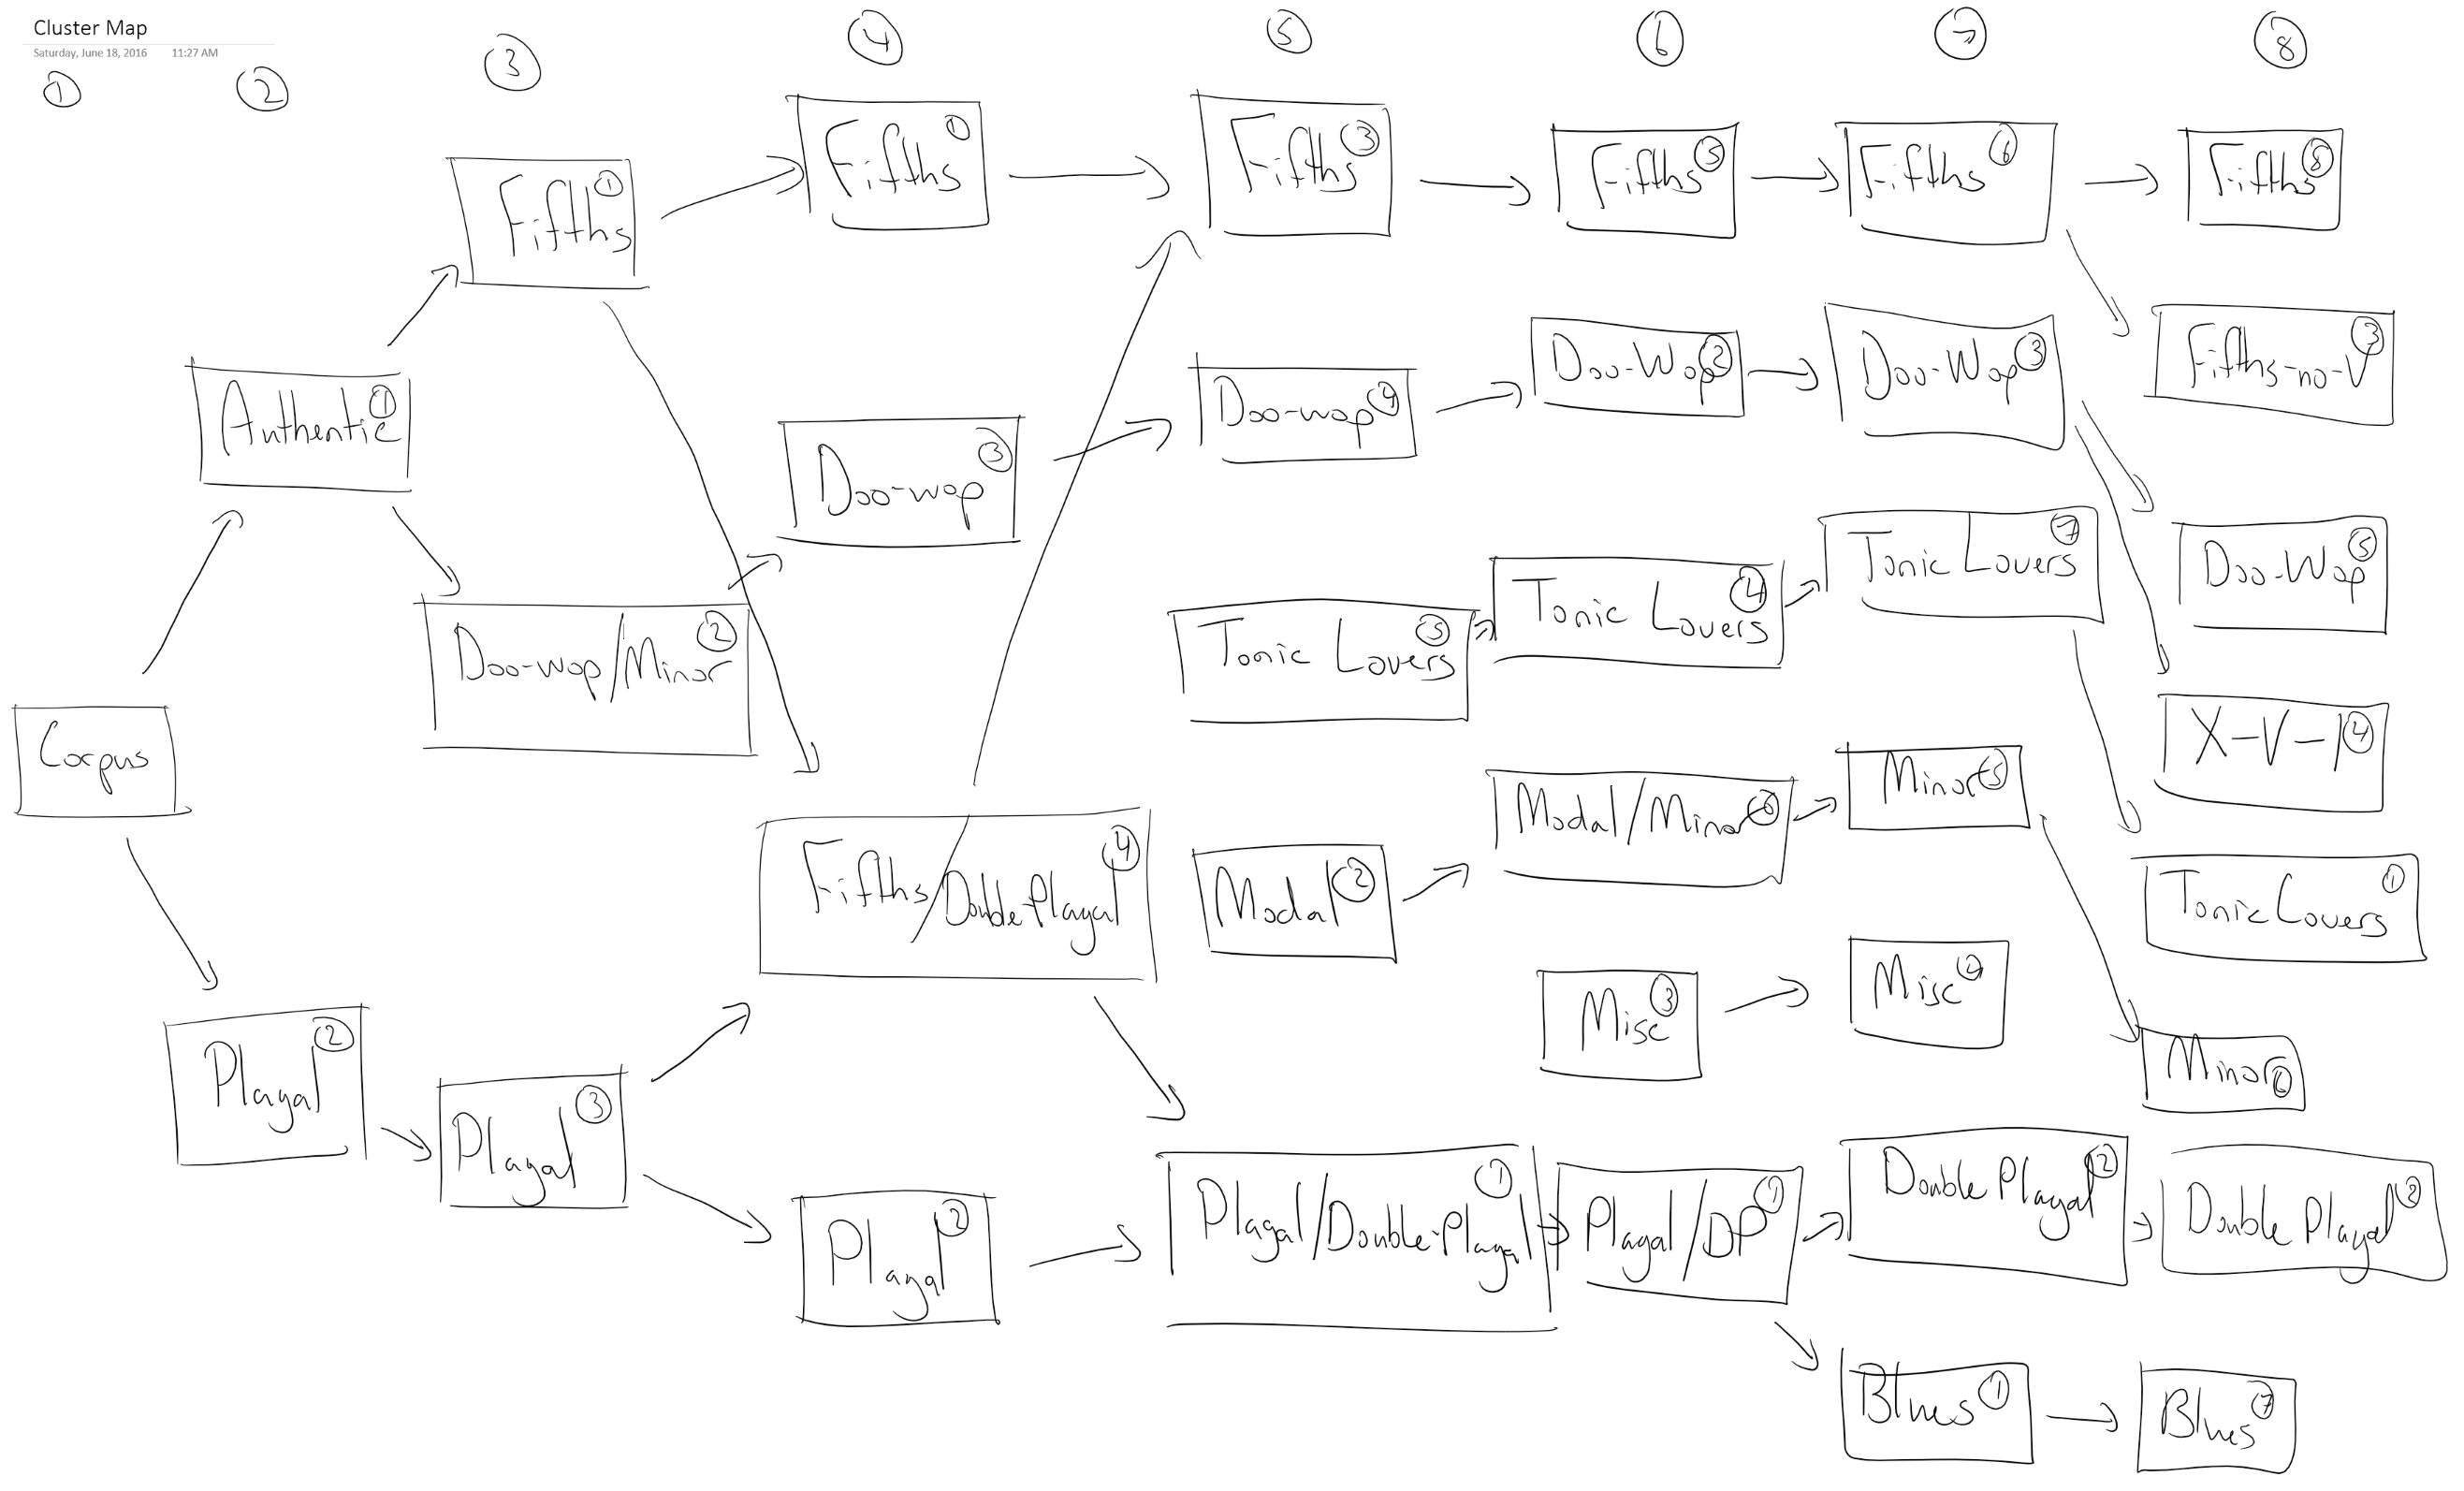 Cluster Map
Saturday, June 18, 2016 11:27 AM
① ② ③ ④ ⑤ ⑥ ⑦ ⑧
Corpus
Authentic ①
Plagal ②
Fifths ①
Doo-wop/Minor ②
Plagal ③
Fifths ①
Doo-wop ③
Fifths/Double-Plagal ④
Plagal ②
Fifths ③
Doo-wop ④
Tonic Lovers ⑤
Modal ②
Plagal/Double-Plagal ①
Fifths ⑤
Doo-Wop ②
Tonic Lovers ④
Modal/Minor ⑥
Misc ③
Plagal/DP ①
Fifths ⑥
Doo-Wop ③
Tonic Lovers ⑦
Minor ⑤
Misc ④
Double Plagal ②
Blues ①
Fifths ⑧
Fifths-no-V ③
Doo-Wop ⑤
X-V-I ④
Tonic Lovers ①
Minor ⑥
Double Plagal ②
Blues ⑦